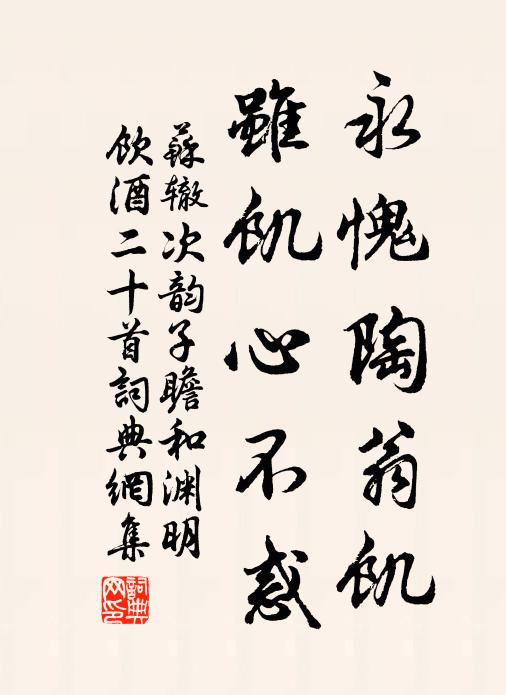 永愧陶翁飢
雖飢心不惑
蘇辙次韵子瞻和渊明
飲酒二十首詞典網集